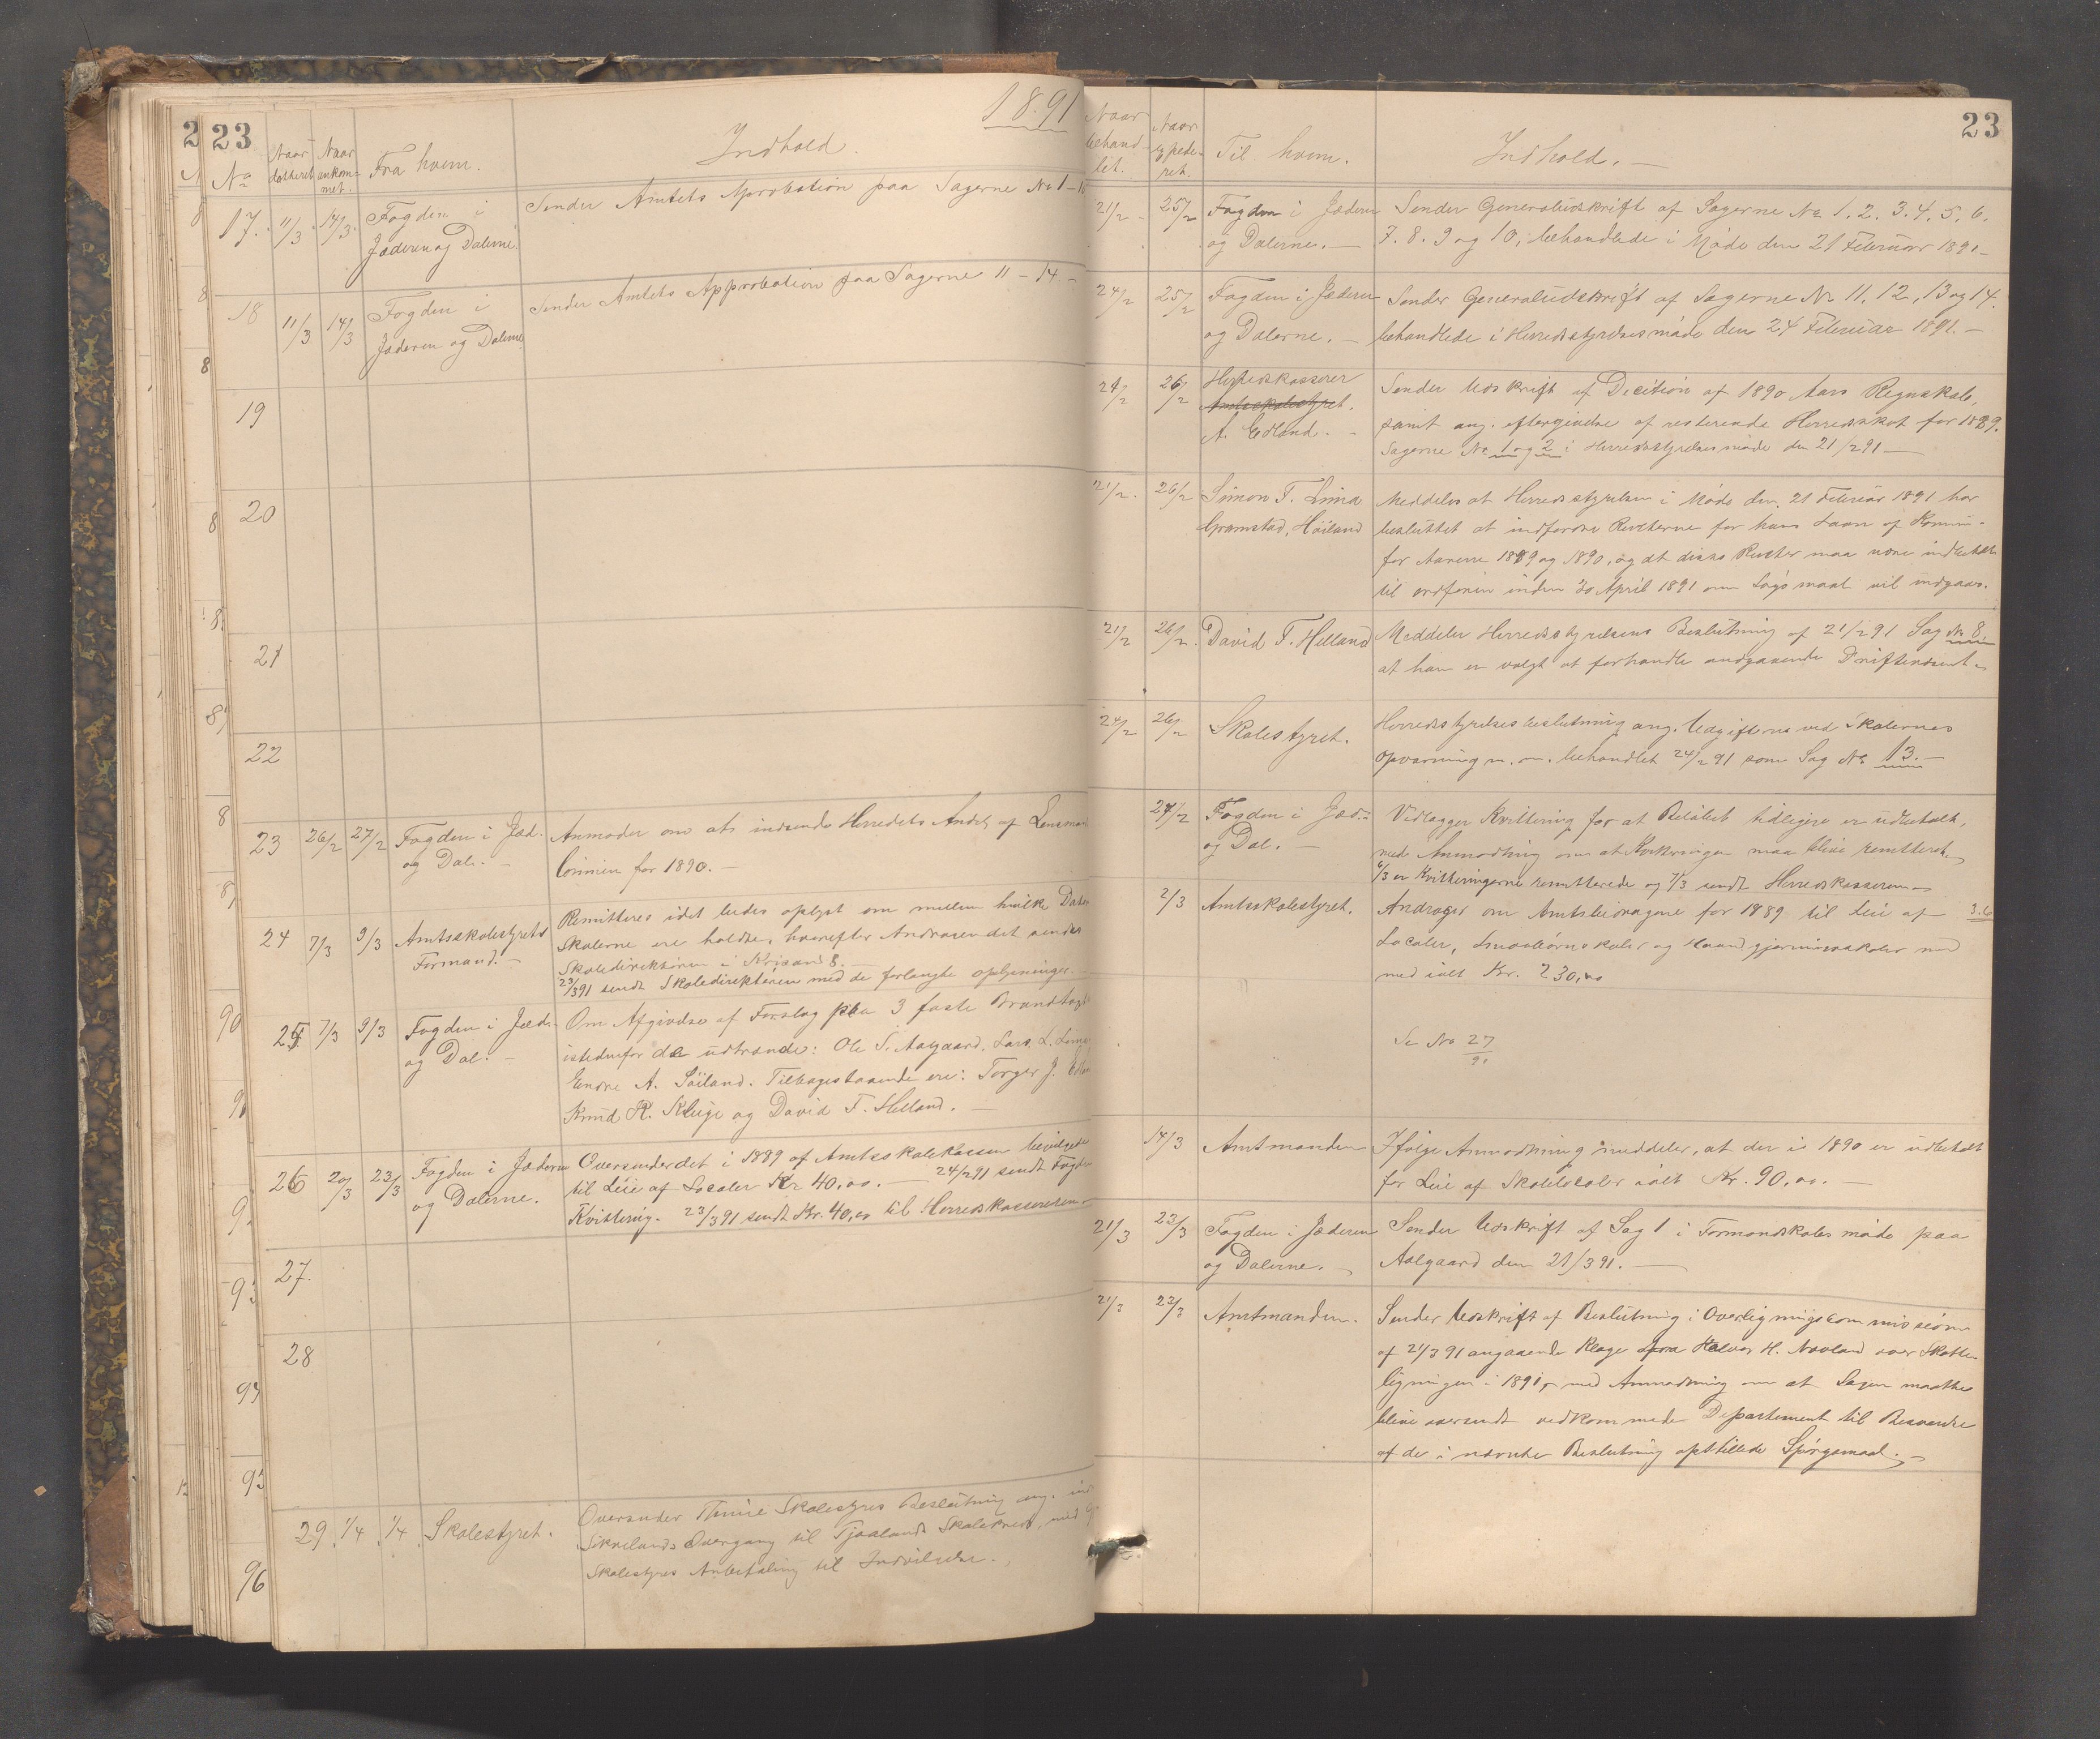 23
1891
No
Naar datteret
Naar ankommet.
Fra hvem.
Indhold.
17. 11/3 14/3. Fogden i Sender Amtets Aprobation paa Sagerne No 1-10
Jæderen og Dalerne.
18 11/3 14/3 Fogden i Sender Amtets Approbation paa Sagerne 11 - 14 -
Jæderen og Dalerne
19
20
21
22
23 26/2 27/2 Fogden i Jæd. Anmoder om at indsende Herredets Andel af
og Dal. - for 1890. -
24 7/3 9/3 Amtsskolestyrets Remitteres idet bedes oplyst om mellem hvilke
Formand. - Skolerne ere holdte, hvorefter Andragendet sendes
Skoledirektøren i
23/3 91 sendt Skoledirektøren med de forlangte oplysninger.
25 7/3 9/3 Fogden i Jæd. Om Afgivelse af Forslag paa 3 faste
og Dal. - istedenfor de udtrædende: Ole S. Aalgaard, Lars L. Lima
Endre A. Søiland. Tilbagestaaende ere: Torger J.
Knud R. Kluge og David T. Helland. -
26 20/3 23/3 Fogden i Jæderen Oversender det i 1889 af Amtsskolekassen bevilgede
og Dalerne. til Leie af Localer Kr 40,00. - 24/3 91 sendt Fogden
Kvittering. 23/3 91 sendt Kr. 40,00 til Herredskassereren
27.
28
29 1/4 1/4 Skolestyret. Oversender Skolestyres Beslutning ang.
Overgang til Tjaalands Skolekreds, med
Skolestyres Anbefaling til Indvilgelse.
23
Naar behandlet.
Naar expederet.
Til hvem.
Indhold. -
21/2 - 25/2 Fogden i Jæderen Sender Generaludskrift af Sagerne No. 1. 2. 3. 4. 5. 6.
og Dalerne. - 7. 8. 9 og 10, behandlede i Møde den 21 Februar 1891. -
24/2 25/2 Fogden i Jæderen Sender Generaludskrift af Sagerne No 11, 12, 13 og 14.
og Dalerne. - behandlede i Herredsstyrelsesmøde den 24 Februar 1891. -
21/2 26/2 Herredskasserer Sender Udskrift af Decition af 1890 Aars Regnskab,
Amtsskolestyret. samt ang. eftergivelse af resterende Herredsskat for 1889.
A. Edland. - Sagerne No 1 og 2 i Herredsstyrelsesmøde den 21/2 91 -
21/2. 26/2 Simon T. Lima Meddeles at Herredsstyrelsen i Møde den 21 Februar 1891 har
Gramstad, Høiland besluttet at indfordre Renterne for hans Laan af
for Aarene 1889 og 1890, og at disse Renter maa være indbetalt
til ordføren inden 30 April 1891 om Søgsmaal vil undgaaes.
21/2 26/2. David T. Helland Meddeler Herredsstyrelsens Beslutning af 21/2 91 Sag No 8.
at han er valgt at forhandle angaaende
24/2 26/2 Skolestyret. Herredsstyrelsesbeslutning ang. Udgifterne ved Skolernes
Opvarmning m.m. behandlet 24/2 91 som Sag No 13. -
27/2 Fogden i Jæd. - Vedlægger Kvittering for at Beløbet tidligere er udbetalt,
og Dal. - med Anmodning om at Kvitteringen maa blive remitteret.
6/3 er Kvitteringerne remitterede og 7/3 sendt Herredskassereren -
2/3 Amtsskolestyret. Andrager om Amtsbidragene for 1889 til Leie af
Localer, Smaabørnsskoler og Haandgjerningsskoler med
med ialt Kr. 230,00
Se No 27/91
14/3 Amtmanden Ifølge Anmodning meddeler, at der i 1890 er udbetalt
for Leie af Skolelocaler ialt Kr. 90,00. -
21/3 23/3 Fogden i Jæderen Sender Udskrift af Sag 1 i Formandskabsmøde paa
og Dalerne. - Aalgaard den 21/3 91. -
21/3 23/3 Amtmanden. Sender Udskrift af Beslutning i Overligningscommissionen
af 21/3 91 angaaende Klage fra Halvor H. Navland over Skatte-
ligningen i 1891, - med Anmodning om at Sagen maatte
blive oversendt vedkommende Departement til Besvarelse
af de i nævnte Beslutning opstillede Spørgsmaal. -